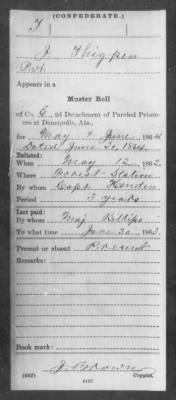 (CONFEDERATE.)
T
J Thigpen
Pvt
Appears in a
Muster Roll
of Co. E, 2d Detachment of Paroled Prisoners
ers at Demopolis, Ala.,
for May & June, 1864
Dated June 30, 1864
Enlisted:
When May 12, 1862.
Where Forest Station
By whom Capt
Period 3 years
Last paid:
By whom Maj
To what time June 30, 1863.
Present or absent Present
Remarks:
Book mark:
(642)
Copyist.